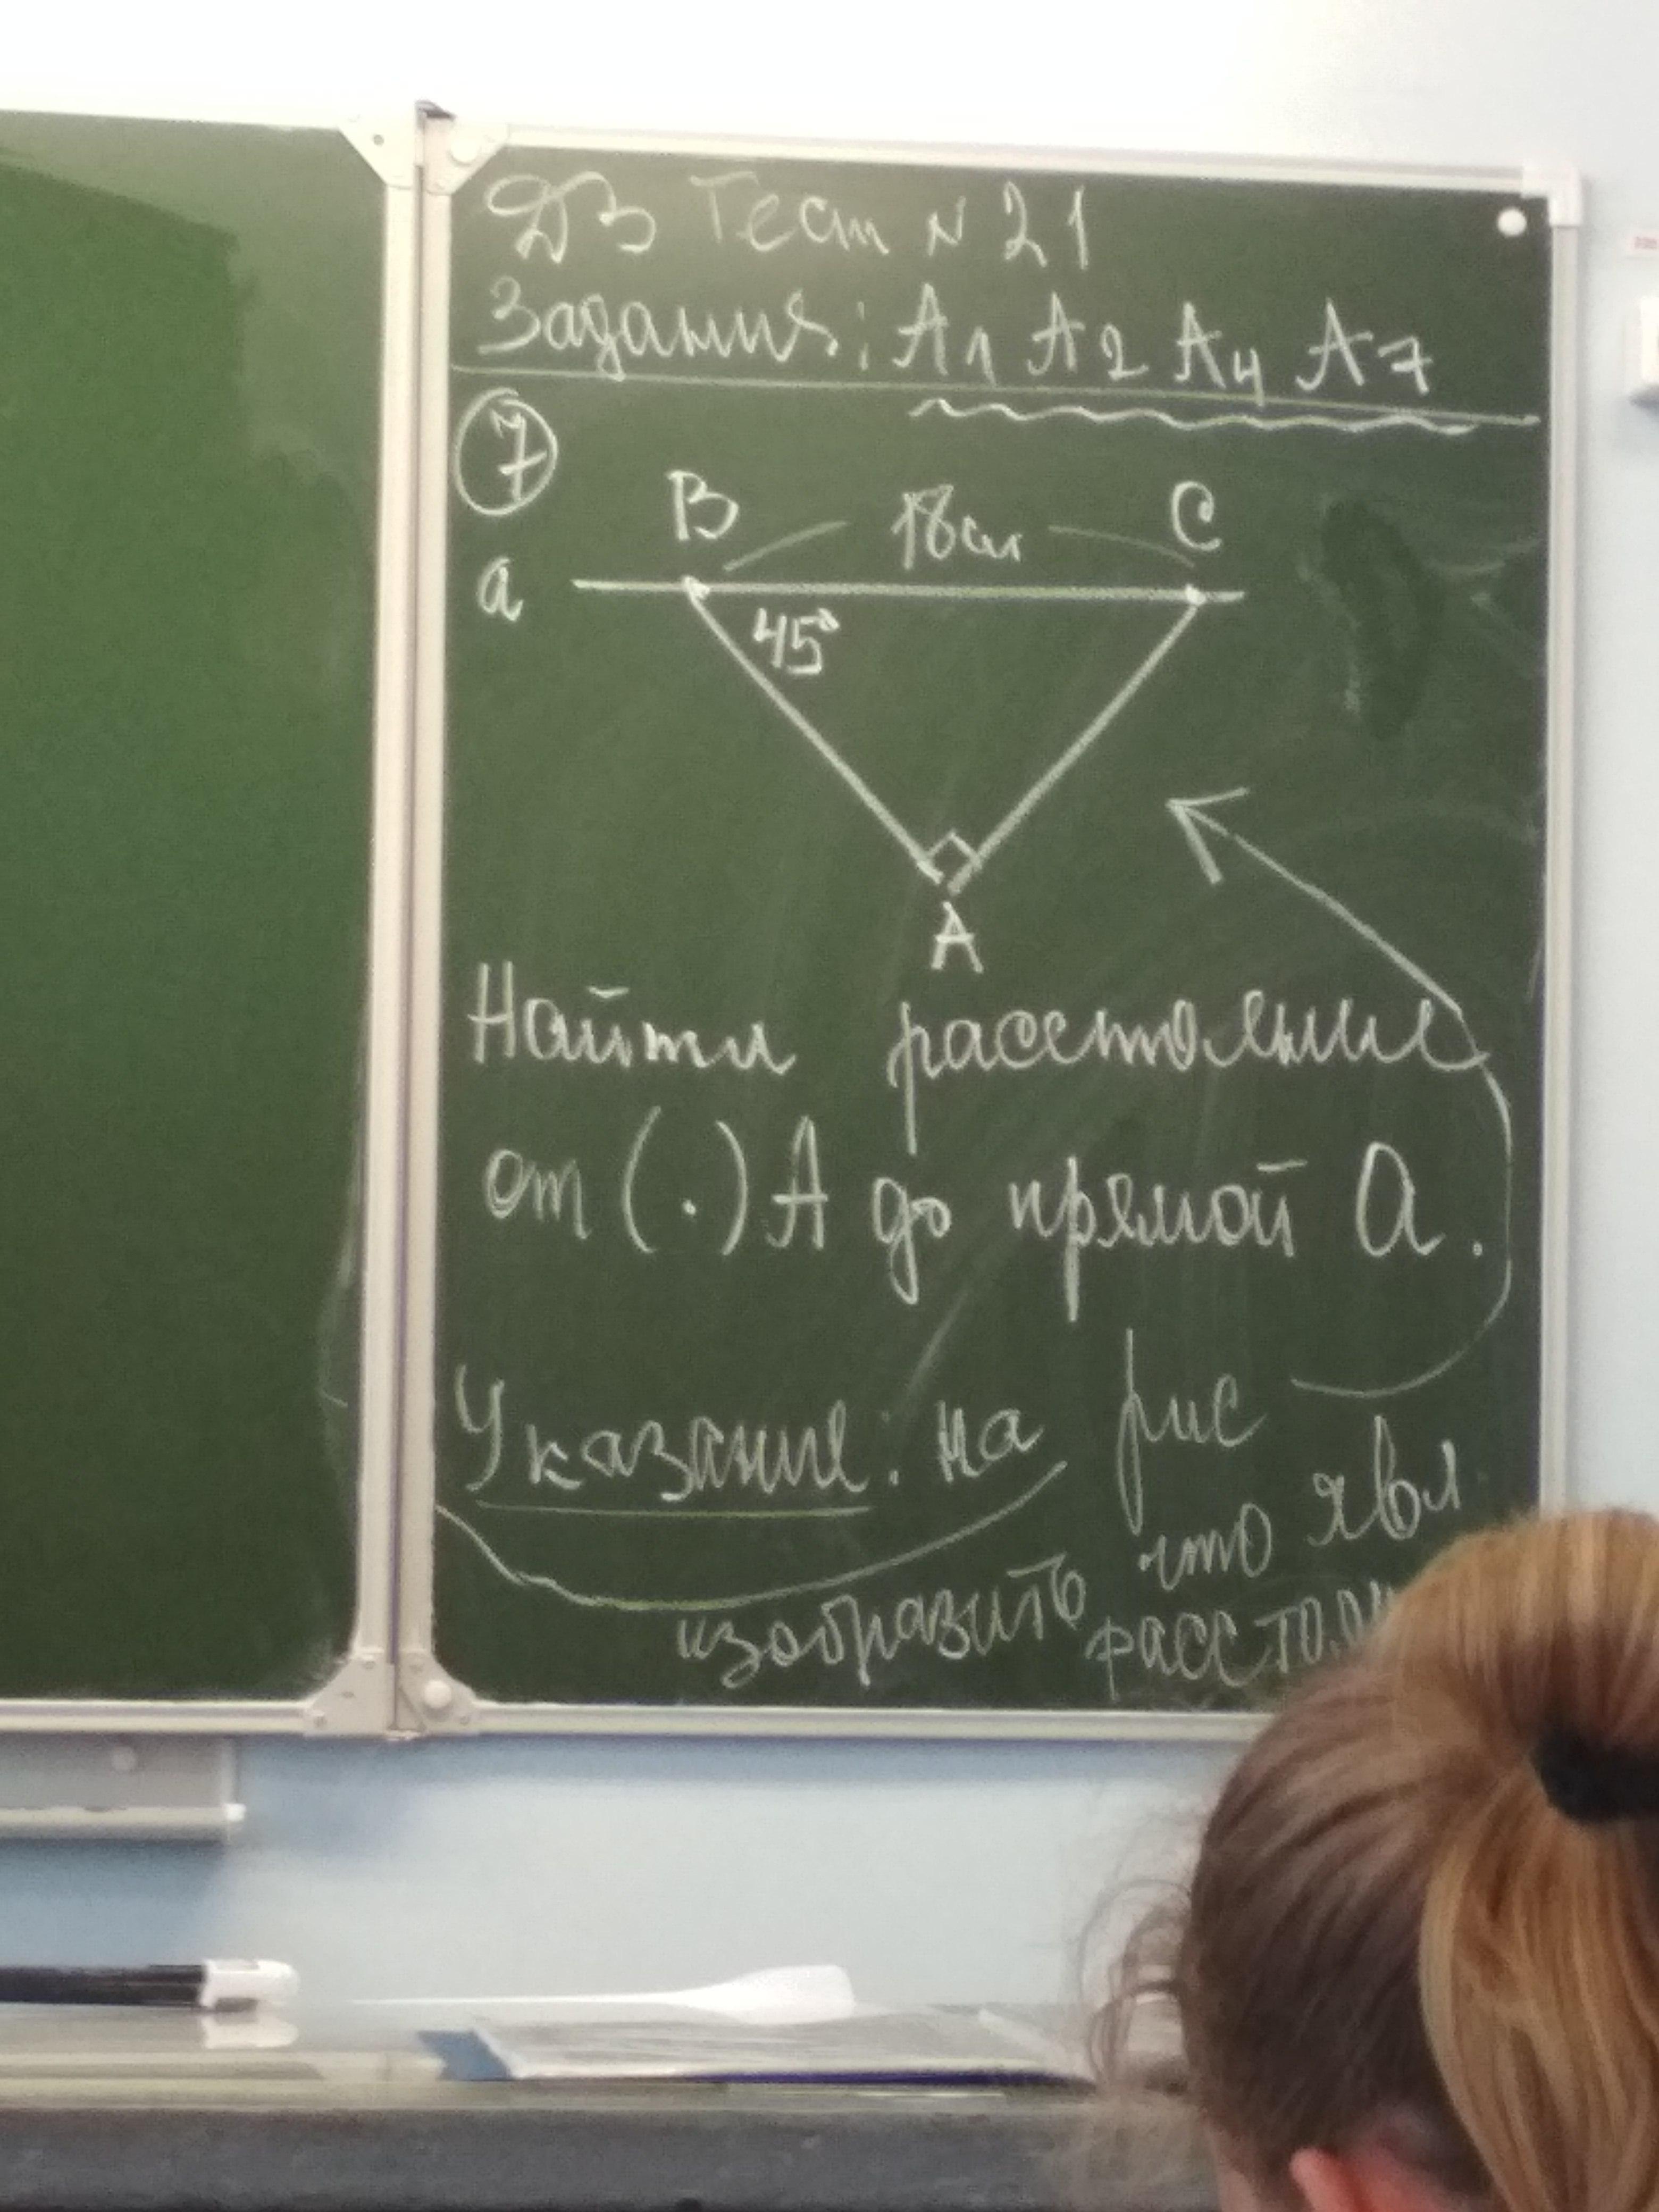 ДЗ Тест № 21
Задания: А1 А2 А4 А7
7
B 18 см C
a
45°
A
Найти расстояние
от (·) А до прямой a.
Указание: на рис
изобразить что явл